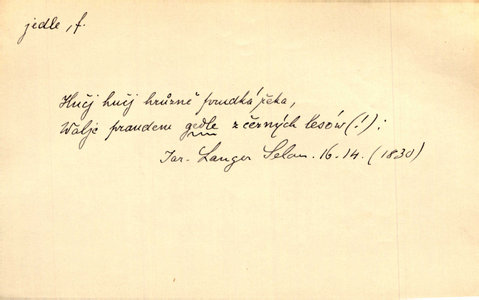 jedle, f.
Hučj hučj hrůzně prudká řeka,
Walje praudem gedle z černých lesów (!);
Jar. Langer Selan. 16. 14. (1830)